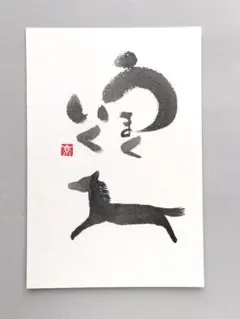 うまく
いく